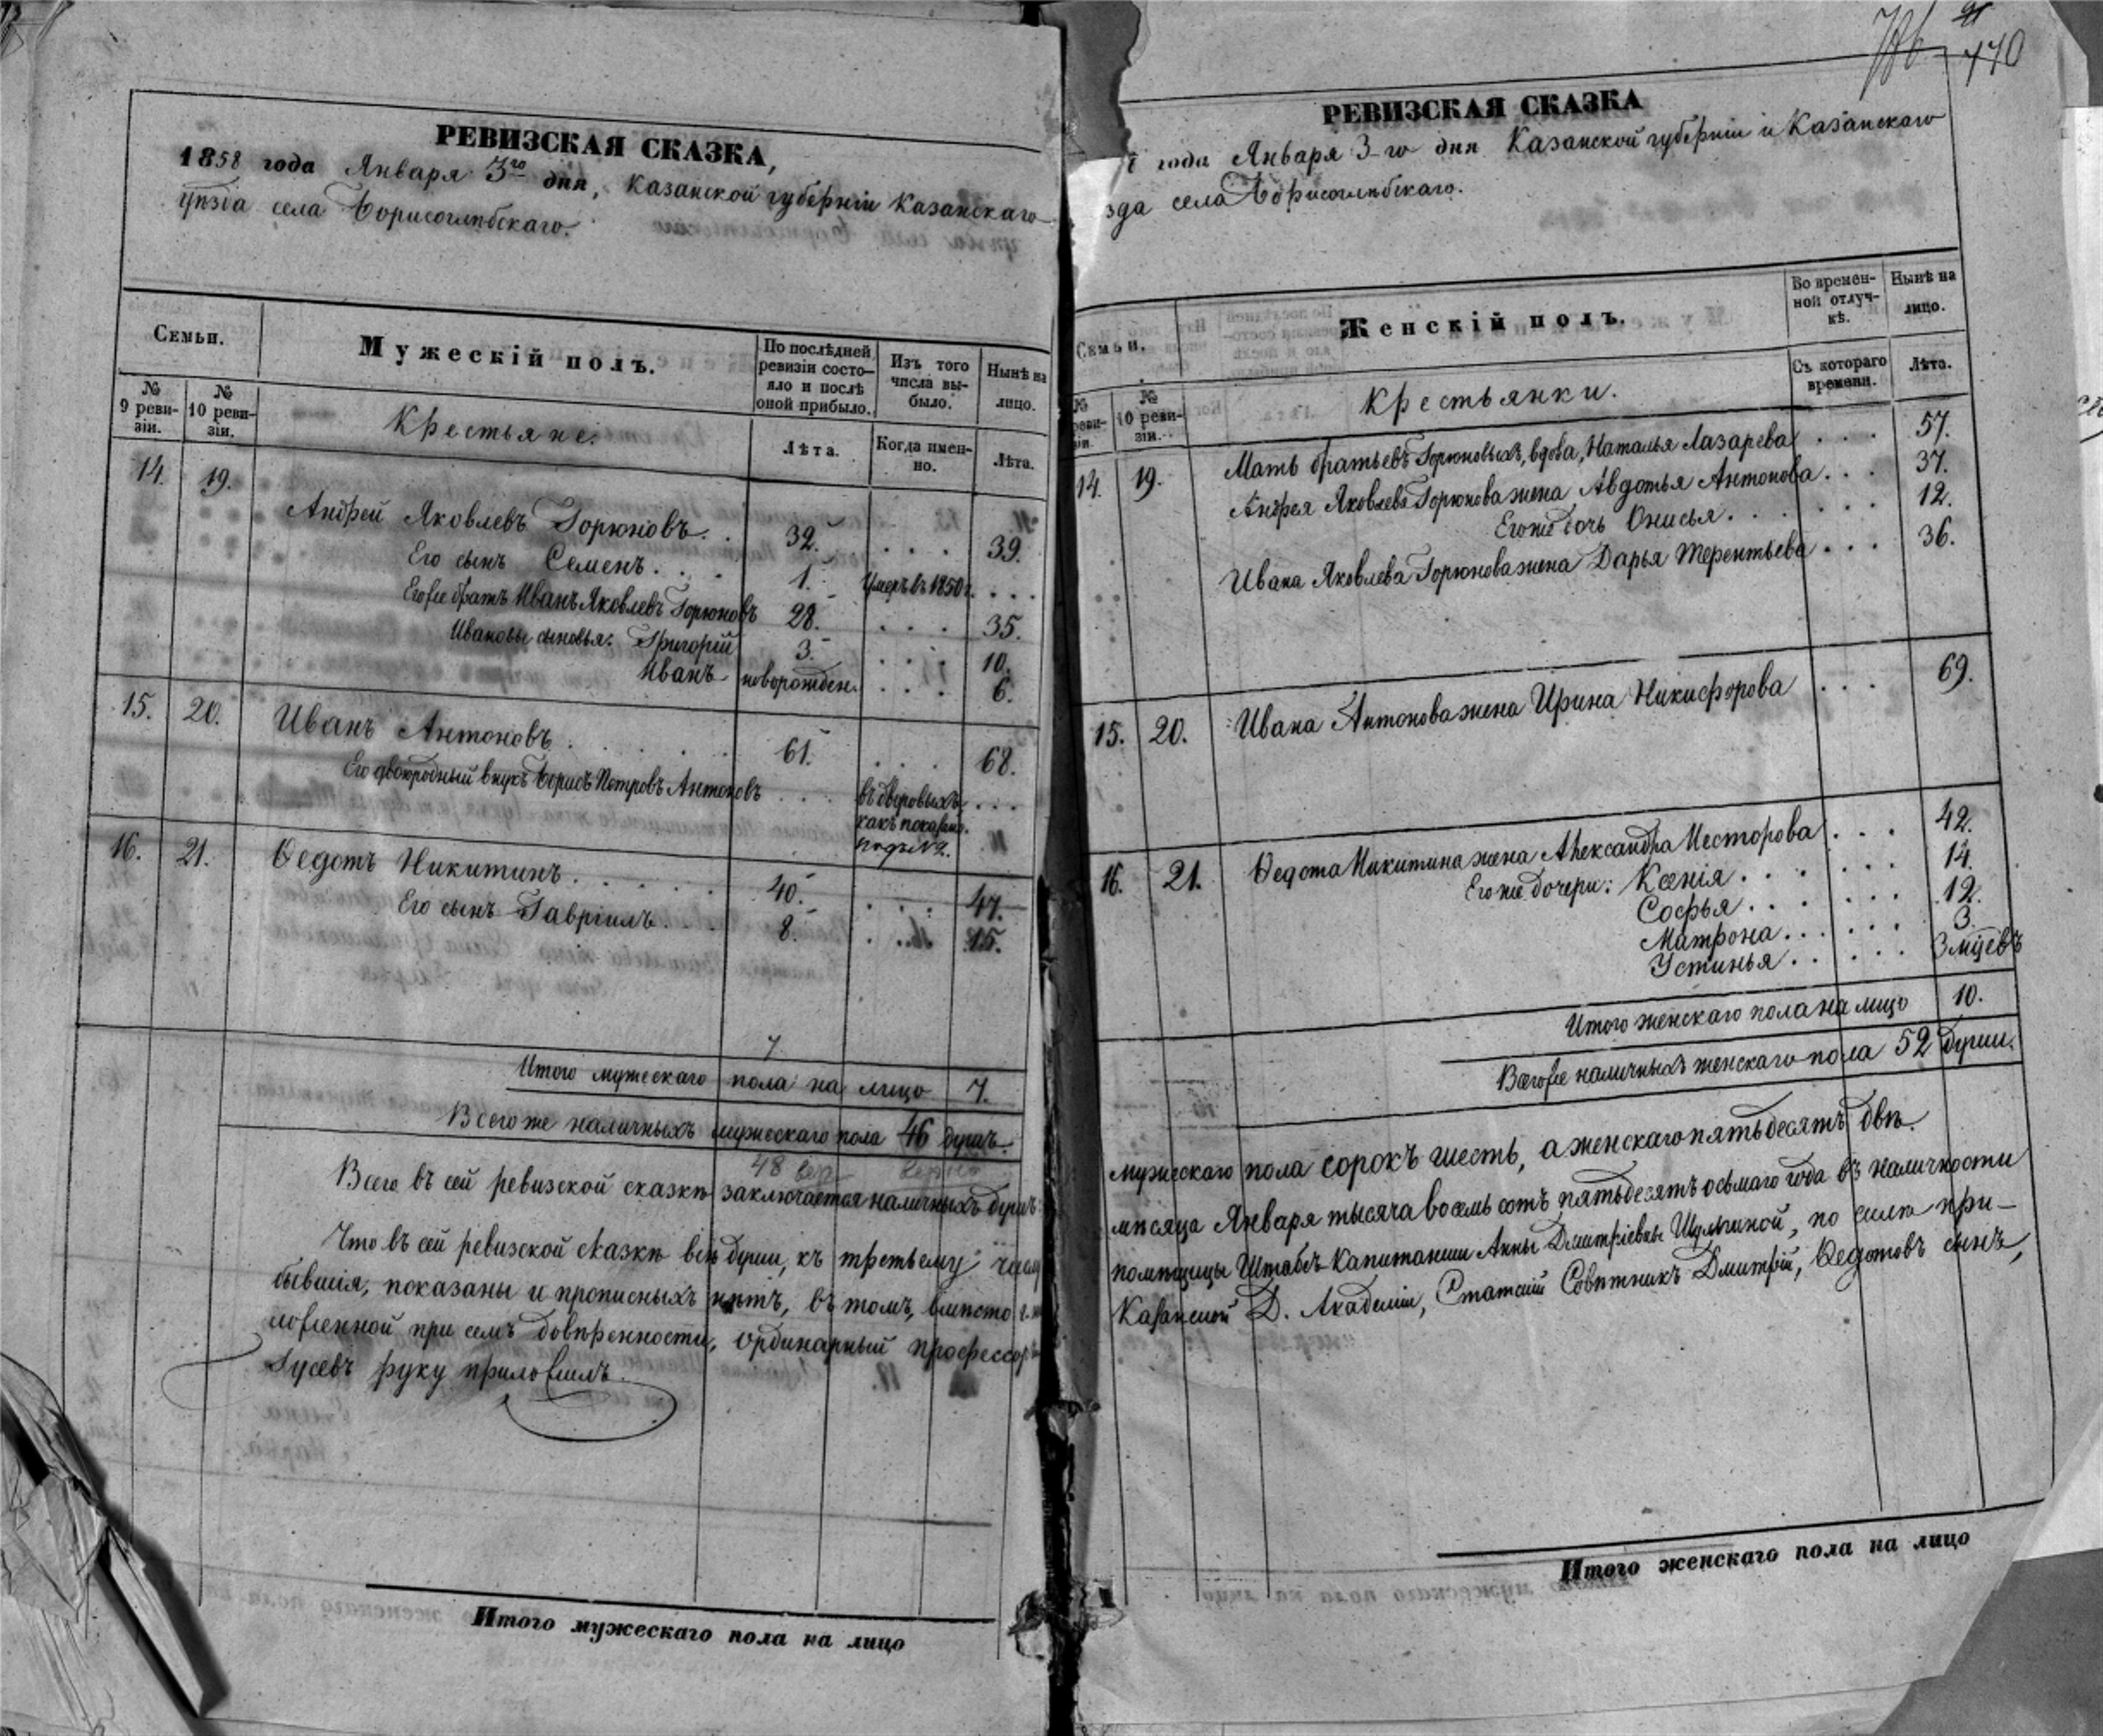 РЕВИЗСКАЯ СКАЗКА,
1858 года Января 3го дня, Казанской губерніи Казанскаго
уѣзда села Борисоглѣбскаго.
Семьи.
Мужескій полъ.
По послѣдней ревизіи состояло и послѣ оной прибыло.
Изъ того числа выбыло.
Нынѣ на лицо.
№ 9 ревизіи.
№ 10 ревизіи.
Крестьяне.
Лѣта.
Когда именно.
Лѣта.
14. 19.
Андрей Яковлевъ Горюновъ. . 32. . . . 39.
Его сынъ Семенъ. . . 1. Умеръ въ 1850 г. . . .
Его же братъ Иванъ Яковлевъ Горюновъ 28. . . . 35.
Ивановы сыновья: Григорій 3. . . . 10.
Иванъ новорожден. . . . 6.
15. 20. Иванъ Антоновъ . . . . 61. . . . 68.
Его двоюродный внукъ Борисъ Петровъ Антоновъ . . . въ дворовыхъ . . .
какъ показано.
подъ №2.
16. 21. Ѳедотъ Никитинъ . . . . . 40. . . . 47.
Его сынъ Гавріилъ. . . 8. . . . 15.
7
Итого мужескаго пола на лицо 7.
Всего же наличныхъ мужескаго пола 46 душъ.
48
Всего въ сей ревизской сказкѣ заключается наличныхъ душъ:
Что въ сей ревизской сказкѣ всѣ души, къ третьему числу
бывшія, показаны и прописныхъ нѣтъ, въ томъ, вмѣсто
ложенной при семъ довѣренности, ординарный профессоръ
Гусевъ руку приложилъ.
Итого мужескаго пола на лицо
21
770
РЕВИЗСКАЯ СКАЗКА
года Января 3-го дня Казанской губерніи и Казанскаго
зда села Борисоглѣбскаго.
Семьи.
Женскій полъ.
Во временной отлучкѣ.
Нынѣ на лицо.
№ реви-зіи.
№ 10 ревизіи.
Крестьянки.
Съ котораго времени.
Лѣта.
14. 19. Мать братьевъ Горюновыхъ, вдова, Наталья Лазарева . . . 57.
Андрея Яковлева Горюнова жена Авдотья Антонова . . . 37.
Его же дочь Онисья . . . . . . 12.
Ивана Яковлева Горюнова жена Дарья Терентьева . . . 36.
15. 20. Ивана Антонова жена Ирина Никифорова . . . 69.
16. 21. Ѳедота Никитина жена Александра Несторова . . . 42.
Его же дочери: Ксенія . . . . . . 14.
Софья . . . . . . 12.
Матрона . . . . . . 3.
Устинья . . . . . . 3 мѣсⷱевъ
Итого женскаго пола на лицо 10.
Всего же наличныхъ женскаго пола 52 души.
мужескаго пола сорокъ шесть, а женскаго пятьдесятъ двѣ.
мѣсяца Января тысяча восемь сотъ пятьдесятъ осьмаго года въ наличности
помѣщицы Штабсъ-Капитанши Анны Дмитріевны по силѣ при-
Казанской Д. Академіи, Статскій Совѣтникъ Дмитрій, Ѳедотовъ сынъ,
Итого женскаго пола на лицо